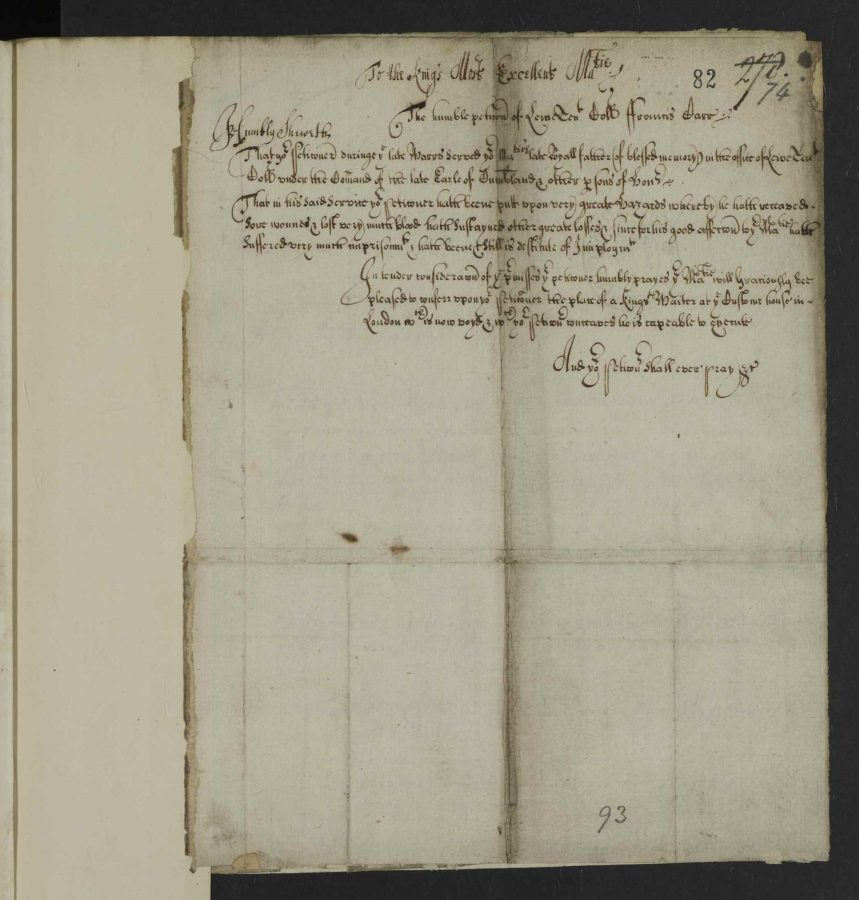 To the Kings Most Excellent Ma:tie
82 276. 74
The humble peticon of Leivetent Coll ffrancis Carr
Humbly Sheweth
That yor Peticoner duringe ye late Warrs served yor Maties late Royall father (of blessed memory) in the office of Leivetent
Coll under the Comand of the late Earle of Cumbland & other psons of Honr
That in his said Service yor Peticoner hath beene put upon very greate Hazards whereby he hath receaved
sore wounds & lost very much blood hath sustayned other greate losses & since for his good affection to yor Matie hath
suffered very much imprisonmt & hath beene & still is destitute of Imploymt
In tender consideracon of ye pmisses yr peticoner humbly prayes yr Matie will Graciously bee
pleased to conferr upon yor Peticoner the place of a Kings Waiter at ye Custome house in
London wch is now voyd & wch yor Peticonr conceaves he is capeable to execute
And yor Peticonr shall ever pray &c
93